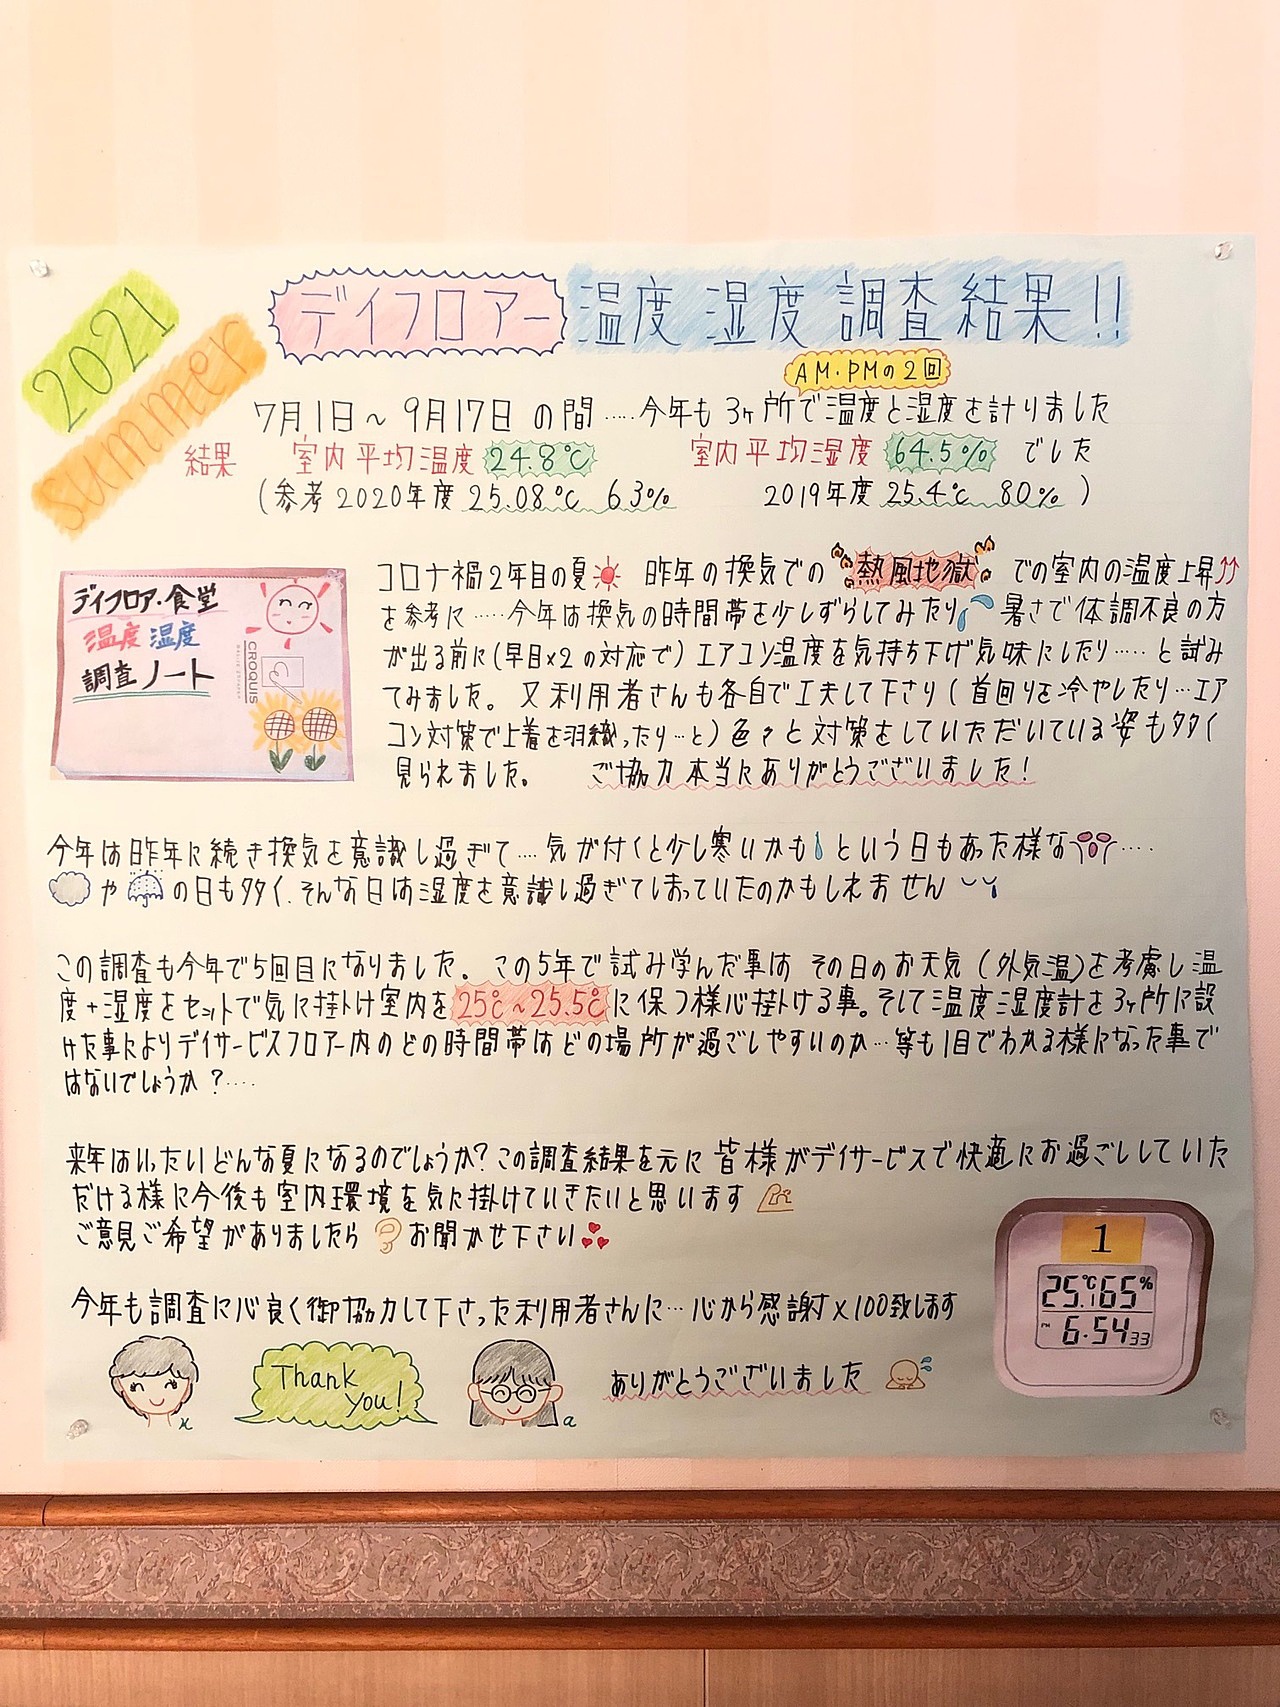 2021
summer
デイフロアー 温度 湿度 調査結果!!
AM・PMの2回
7月1日〜9月17日 の間 ‥‥‥今年も 3ヶ所で温度と湿度を計りました
結果 室内平均温度 24.8℃ 室内平均湿度 64.5% でした
(参考 2020年度 25.08℃ 63% 2019年度 25.4℃ 80% )
デイフロア・食堂
温度 湿度
調査ノート
CROQUIS
コロナ禍2年目の夏 昨年の換気での 熱風地獄 での室内の温度上昇⇈
を参考に‥‥‥今年は換気の時間帯を少しずらしてみたり 暑さで体調不良の方
が出る前に(早目×2の対応で)エアコン温度を気持ち下げ気味にしたり‥‥‥と試み
てみました。又利用者さんも各自で工夫して下さり(首回りを冷やしたり…エア
コン対策で上着を羽織ったり…と)色々と対策をしていただいている姿も多く
見られました。 ご協力本当にありがとうございました!
今年は昨年に続き換気を意識し過ぎて‥‥気が付くと少し寒いかも という日もあった様な‥‥
や の日も多く、そんな日は湿度を意識し過ぎてしまっていたのかもしれません
この調査も今年で5回目になりました。この5年で試み学んだ事は その日のお天気(外気温)を考慮し温
度+湿度をセットで気に掛け室内を25℃〜25.5℃に保つ様心掛ける事。そして温度湿度計を3ヶ所に設
けた事によりデイサービスフロアー内のどの時間帯はどの場所が過ごしやすいのか…等も1目でわかる様になった事で
はないでしょうか?‥‥
来年はいったいどんな夏になるのでしょうか?この調査結果を元に 皆様がデイサービスで快適にお過ごししていた
だける様に今後も室内環境を気に掛けていきたいと思います
ご意見ご希望がありましたら お聞かせ下さい
今年も調査に心良く御協力して下さった利用者さんに…心から感謝×100致します
Thank
you!
a
ありがとうございました
1
25.1℃65%
PM 6:5433